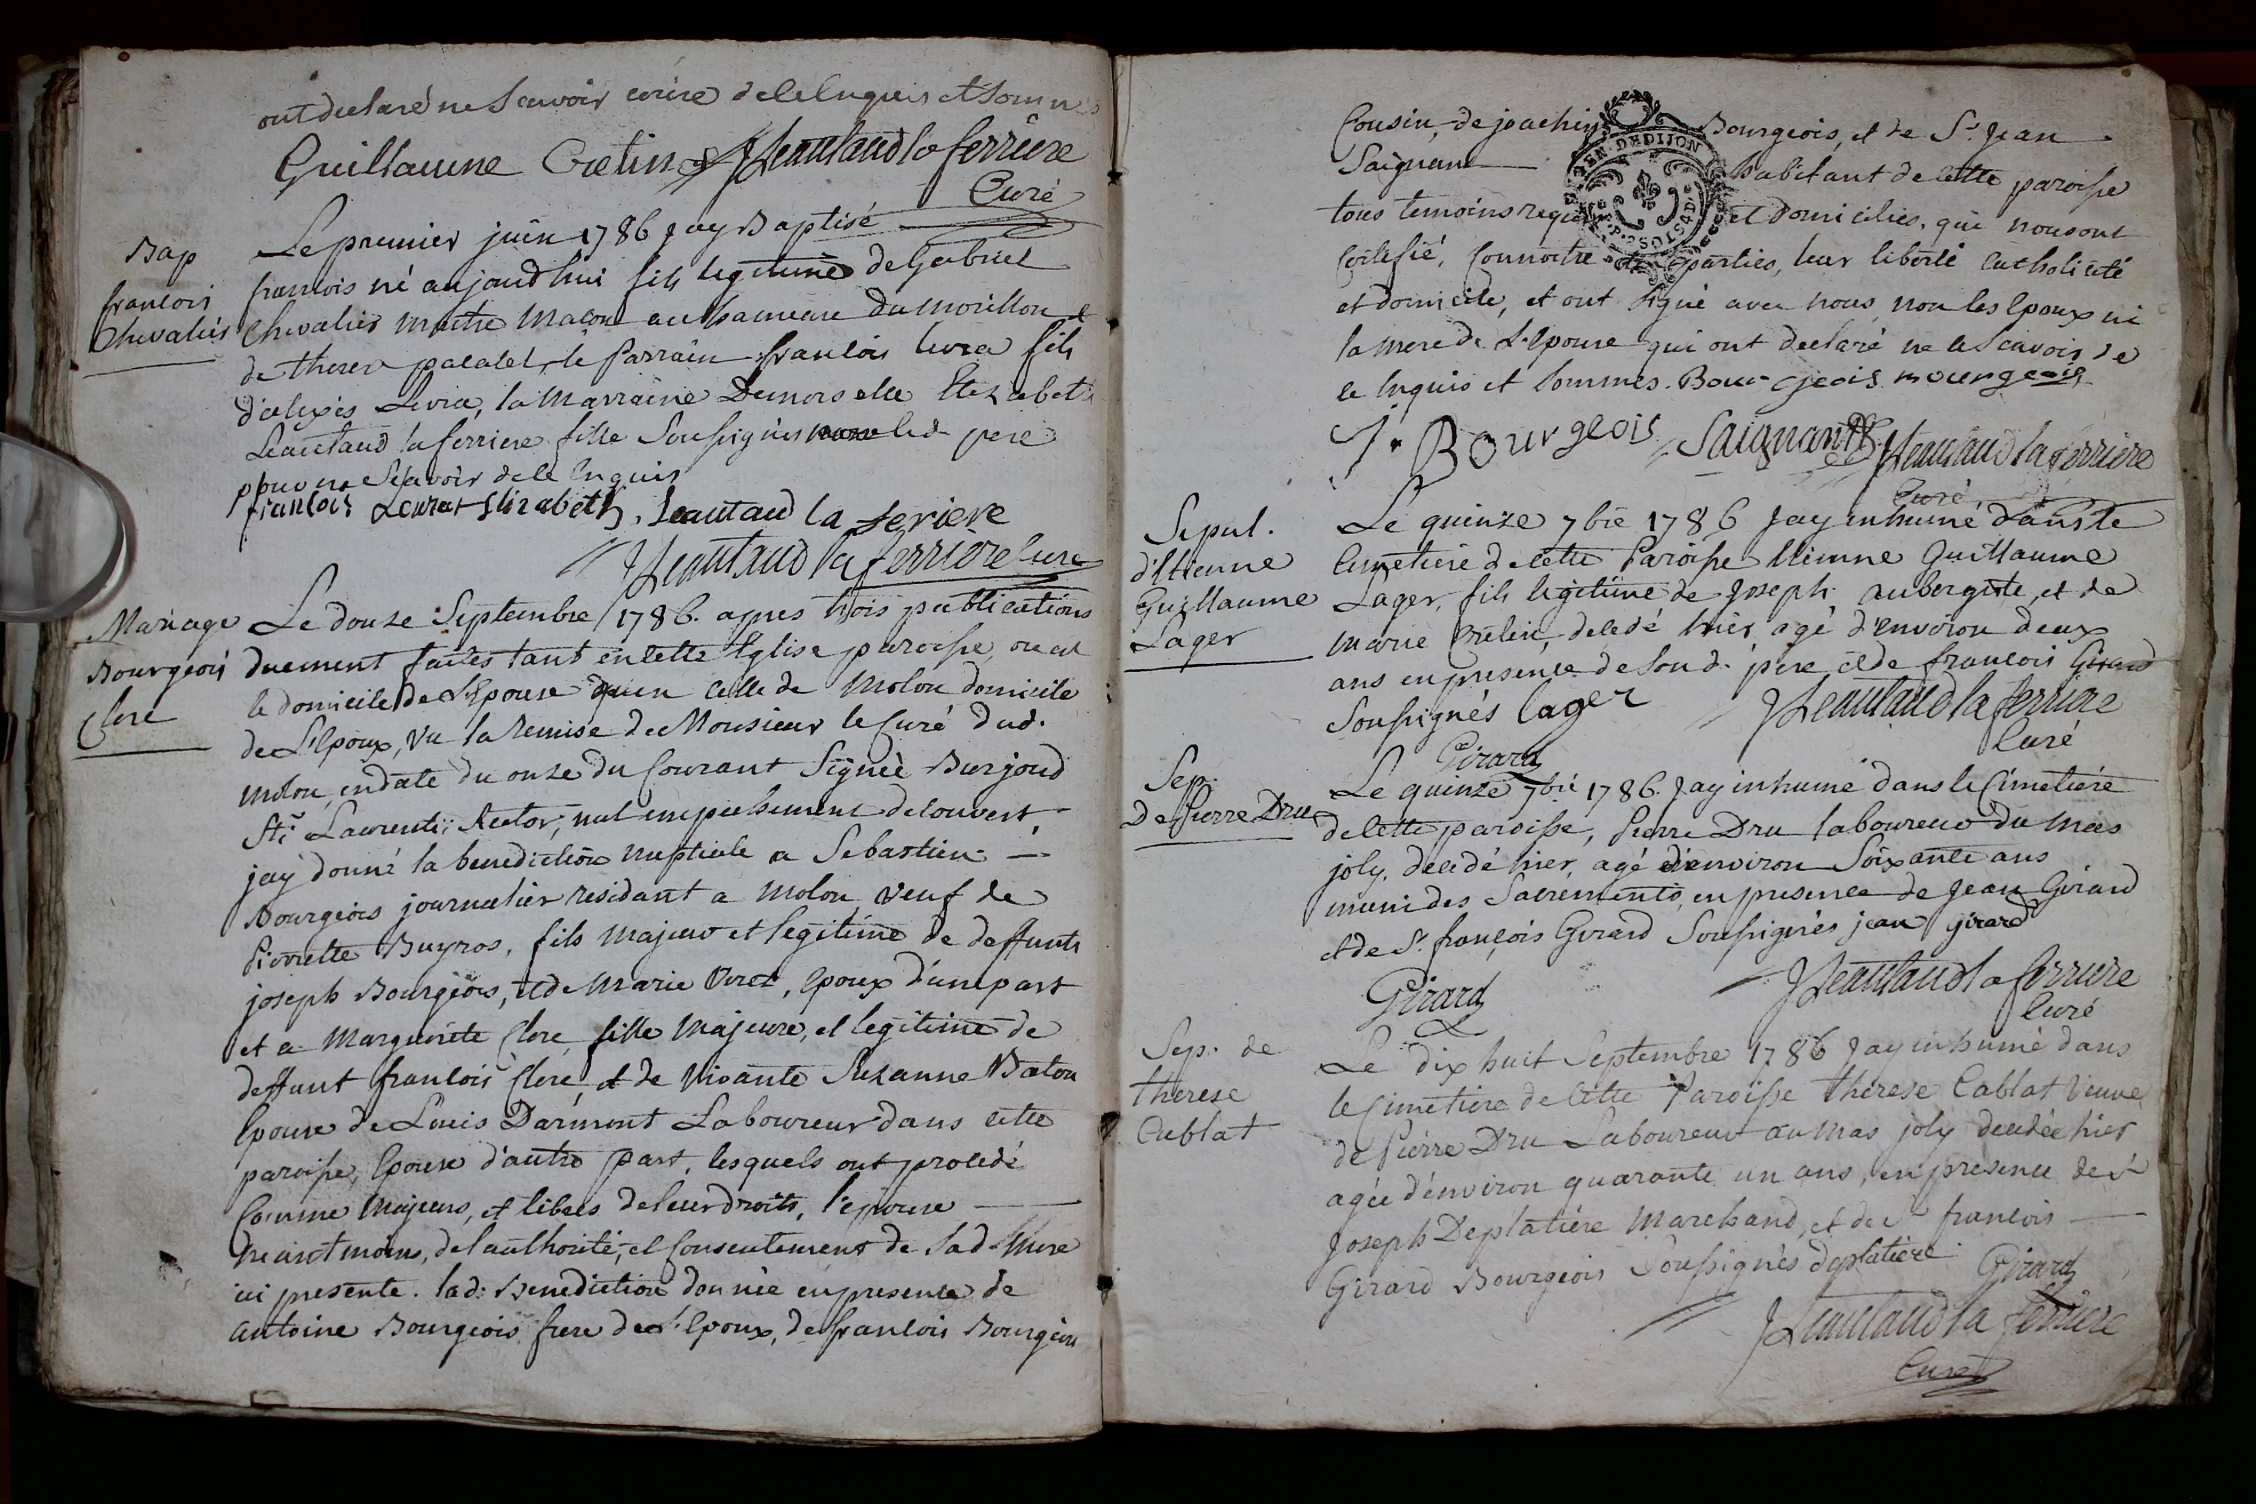 ont declaré ne Scavoir ecrire de ce Enquis et Sommes
Guillaume Cretin JLeautaud la ferriere
Curé
Bap
francois
Chevalier
Le premier juin 1786 jay Baptisé
francois né aujourdhui fils legitime de Gabriel
Chevalier maitre Macon au hameau du morillon &
de therese le Parrain francois fils
d'alexis la Marraine Demoiselle Elizabeth
Leautaud la ferriere fille Soussignés non led. pere
pour ne Scavoir de ce Enquis
francois Elizabeth Leautaud la feriere
JLeautaud la ferriere Curé
Mariage
Bourgeois
Clere
Le douze Septembre 1786. apres trois publications
duement faites tant en cette Eglise paroisse, ou est
le domicile de L'Epouse qu'en celle de Molon domicile
de L'Epoux, Vu la Remise de Monsieur le Curé dud.
molon en date du onze du Courant Signée Burjoud
Sti Laurentii Rector, nul empechement decouvert
jay donné la benediction nuptiale a Sebastien
Bourgeois journalier residant a Molon veuf de
Pierrette Buyros, fils majeur et legitime de deffunts
joseph Bourgeois, et de Marie, Epoux d'une part
et a Marguerite Clere, fille Majeure, et legitime de
deffunt francois Clere et de vivante Suzanne Baton
Epouse de Louis Darmont Laboureur dans cette
paroisse, Epouse d'autre part, lesquels ont procedé
Comme Majeurs, et libres de leur droits, l'epouse
neantmoins, de l'authorité, et Consentement de Sad. Mere
ici presente. lad: Benediction donnée en presence de
antoine Bourgeois frere de L'Epoux, de francois Bourgeois
Cousin, de joachim Bourgeois, et de Sr. Jean
Saignant habitant de cette paroisse
tous temoins requis et domiciliés, qui nous ont
Certifié, Connoitre les parties, leur liberté catholicité
et domicile, et ont Signé avec nous, non les Epoux ni
la Mere de L'Epouse qui ont declaré ne le Scavoir de
ce Enquis et Sommés. Bourgeois Bourgeois
J. Bourgeois Saignant JLeautaud la ferriere
Curé
GEN. DE DIJON
Sepul.
d'Etienne
Guillaume
Lager
Le quinze 7bre 1786 Jay inhumé dans le
Cimetiere de cette Paroisse Etienne Guillaume
Lager, fils legitime de Joseph aubergiste, et de
marie decedé hier agé d'environ deux
ans en presence de Son d. pere et de francois Girard
Soussignés Lager JLeautaud la ferriere
Girard Curé
Sep.
De Pierre Dru
Le quinze 7bre 1786. Jay inhumé dans le Cimetiere
de cette paroisse, Pierre Dru laboureur du Mas
joly. decedé hier, agé d'environ Soixante ans
muni des Sacrements, en presence de Jean Girard
et de Sr. françois Girard Soussignés jean girard
Girard JLeautaud la ferriere
Curé
Sep. de
therese
Cablat
Le dix huit Septembre 1786 Jay inhumé dans
le Cimetiere de cette Paroisse therese Cablat Veuve
de Pierre Dru Laboureur au Mas joly decedée hier
agée d'environ quarante un ans, en presence de Sr
Joseph Deplatiere Marchand, et de Sr francois
Girard Bourgeois Soussignés deplatiere Girard
JLeautaud la ferriere
Curé